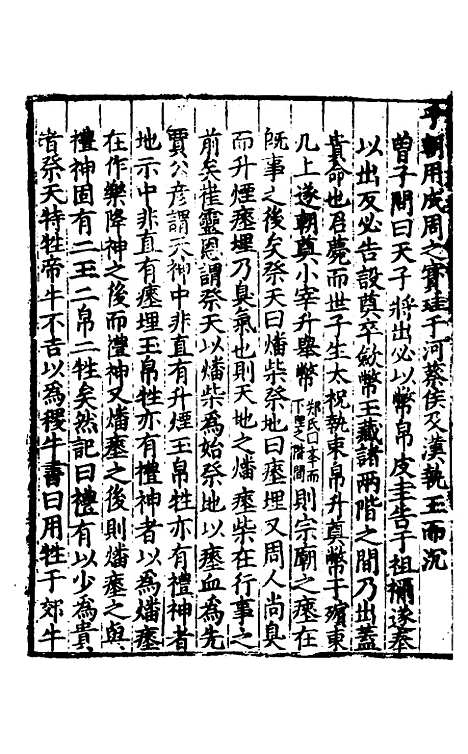 子朝用成周之寶珪于河蔡侯及漢執玉而沉
曾子問曰天子將出必以幣帛皮圭告于祖禰遂奉
以出反必告設奠卒斂幣玉藏諸兩階之間乃出蓋
貴命也君薨而世子生太祝執束帛升奠幣于殯東
几上遂朝奠小宰升舉幣鄭氏曰舉而下埋之階間則宗廟之瘞在
既事之後矣祭天曰燔柴祭地曰瘞埋又周人尚臭
而升煙瘞埋乃臭氣也則天地之燔瘞柴在行事之
前矣崔靈恩謂祭天以燔柴為始祭地以瘞血為先
賈公彥謂天神中非直有升煙玉帛牲亦有禮神者
地示中非直有瘞埋玉帛牲亦有禮神者以為燔瘞
在作樂降神之後而禮神又燔瘞之後則燔瘞之與
禮神固有二玉二帛二牲矣然記曰禮有以少為貴
者祭天特牲帝牛不吉以為稷牛書曰用牲于郊牛